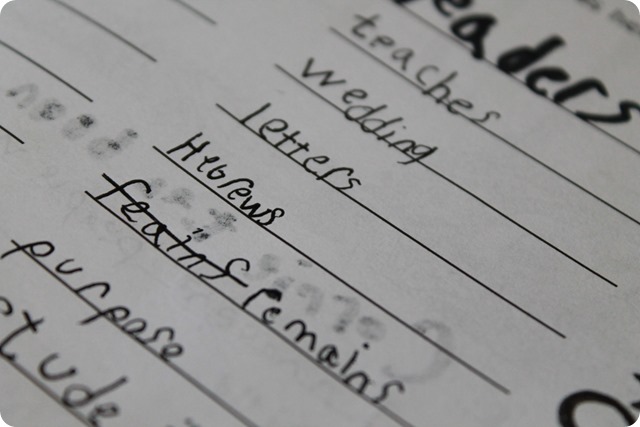 eaders
teaches
wedding
letters
Hebrews
remains
purpose
tude